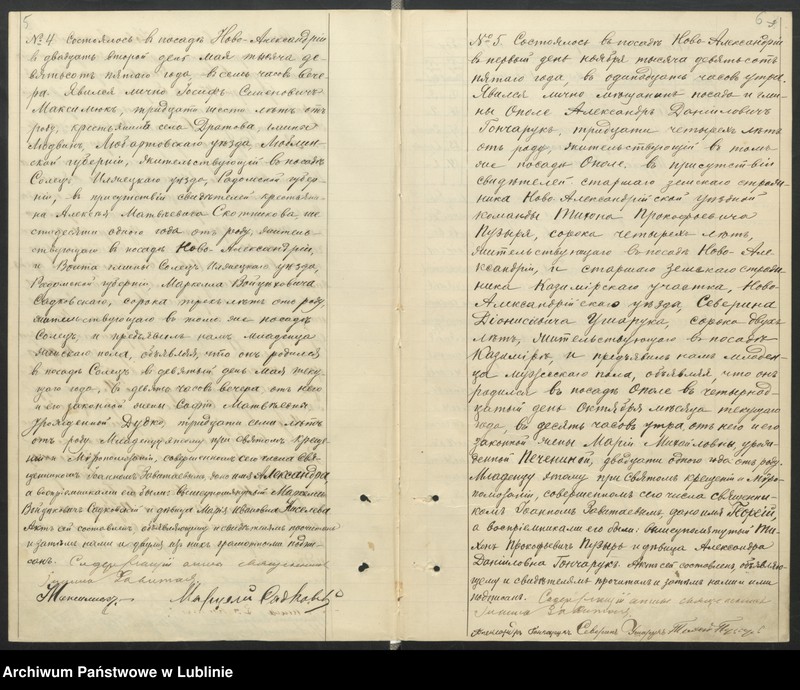 5
№ 4 Состоялось в посадѣ Ново-Александріи
в двадцать второй день Мая тысяча де-
вятьсот пятаго года, в семь часов вече-
ра. Явился лично Іосифъ Семеновичъ
Максимюкъ, тридцати шести лѣтъ отъ
роду, крестьянинъ села Дратова, гмины
Людвинъ, Любартовскаго уѣзда, Люблин-
ской губерніи, жительствующій в посадѣ
Солецъ Илжецкаго уѣзда, Радомской губер-
ніи, в присутствіи свидѣтелей крестьяни-
на Алексѣя Матвѣевича Скотникова, ше
стидесяти одного года отъ роду, житель
ствующаго в посадѣ Ново-Александріи,
и Войта гмины Солецъ Илжецкаго уѣзда,
Радомской губерніи, Марцелла Войцѣховича
Садковскаго, сорока трехъ лѣтъ отъ роду,
жительствующаго в томъ же посадѣ
Солецъ, и предъявилъ намъ младенца
женскаго пола, объявляя, что онъ родился
в посадѣ Солецъ в девятый день Мая теку
щаго года, в девять часов вечера, отъ него
и его законной жены Софіи Матвѣевны
урожденной Дудко, тридцати семи лѣтъ
отъ роду. Младенцу этому при Святомъ Креще
ніи и Мѵропомазаніи, совершенномъ сего числа Свя-
щенникомъ Іоанномъ Завитаевымъ, дано имя Александра,
а воспріемниками его были: вышеупомянутый Марцеллъ
Войцѣховичъ Садковскій и дѣвица Марія Ивановна Киселева
Актъ сей составленъ, объявляющему и свидѣтелямъ прочитанъ
и затѣмъ нами и двумя изъ нихъ грамотными подпи-
санъ. Содержащій акты священникъ
Іоаннъ Завитаевъ
Максимюкъ Марцелій Садковскій
6
№ 5. Состоялось в посадѣ Ново-Александріи
в первый день ноября тысяча девятьсотъ
пятаго года, в одинадцать часовъ утра.
Явился лично мѣщанинъ посада и гми-
ны Ополе Александръ Даніиловичъ
Гончарукъ, тридцати четырехъ лѣтъ
отъ роду, жительствующій в томъ
же посадѣ Ополе. в присутствіи
свидѣтелей старшаго земскаго страж-
ника Ново-Александрійской уѣздной
команды Тихона Прокофьевича
Пузыря, сорока четырехъ лѣтъ,
жительствующаго в посадѣ Ново-Але-
ксандріи, и старшаго земскаго страж-
ника Казимірскаго участка, Ново-
Александрійскаго уѣзда, Северина
Діонисіевича Ушарука, сорока двухъ
лѣтъ, жительствующаго в посадѣ
Казиміръ, и предъявилъ намъ младен-
ца мужескаго пола, объявляя, что онъ
родился в посадѣ Ополе в четырнад-
цатый день Октября мѣсяца текущаго
года, в десять часовъ утра, отъ него и его
законной жены Маріи Михайловны, урож-
денной Печениной, двадцати одного года отъ роду.
Младенцу этому при Святомъ крещеніи и Мѵро-
помазаніи, совершенномъ сего числа священни-
комъ Іоанномъ Завитаевымъ, дано имя Георгій,
а воспріемниками его были: Вышеупомянутый Ти-
хонъ Прокофьевичъ Пузырь и дѣвица Александра
Даниловна Гончарукъ. Актъ сей составленъ, объявляю-
щему и свидѣтелямъ прочитанъ и затѣмъ нами и ими
подписанъ. Содержащій акты священникъ
Іоаннъ Завитаевъ
Александръ Гончарукъ Северинъ Ушарукъ Тихонъ Пузырь
Archiwum Państwowe w Lublinie